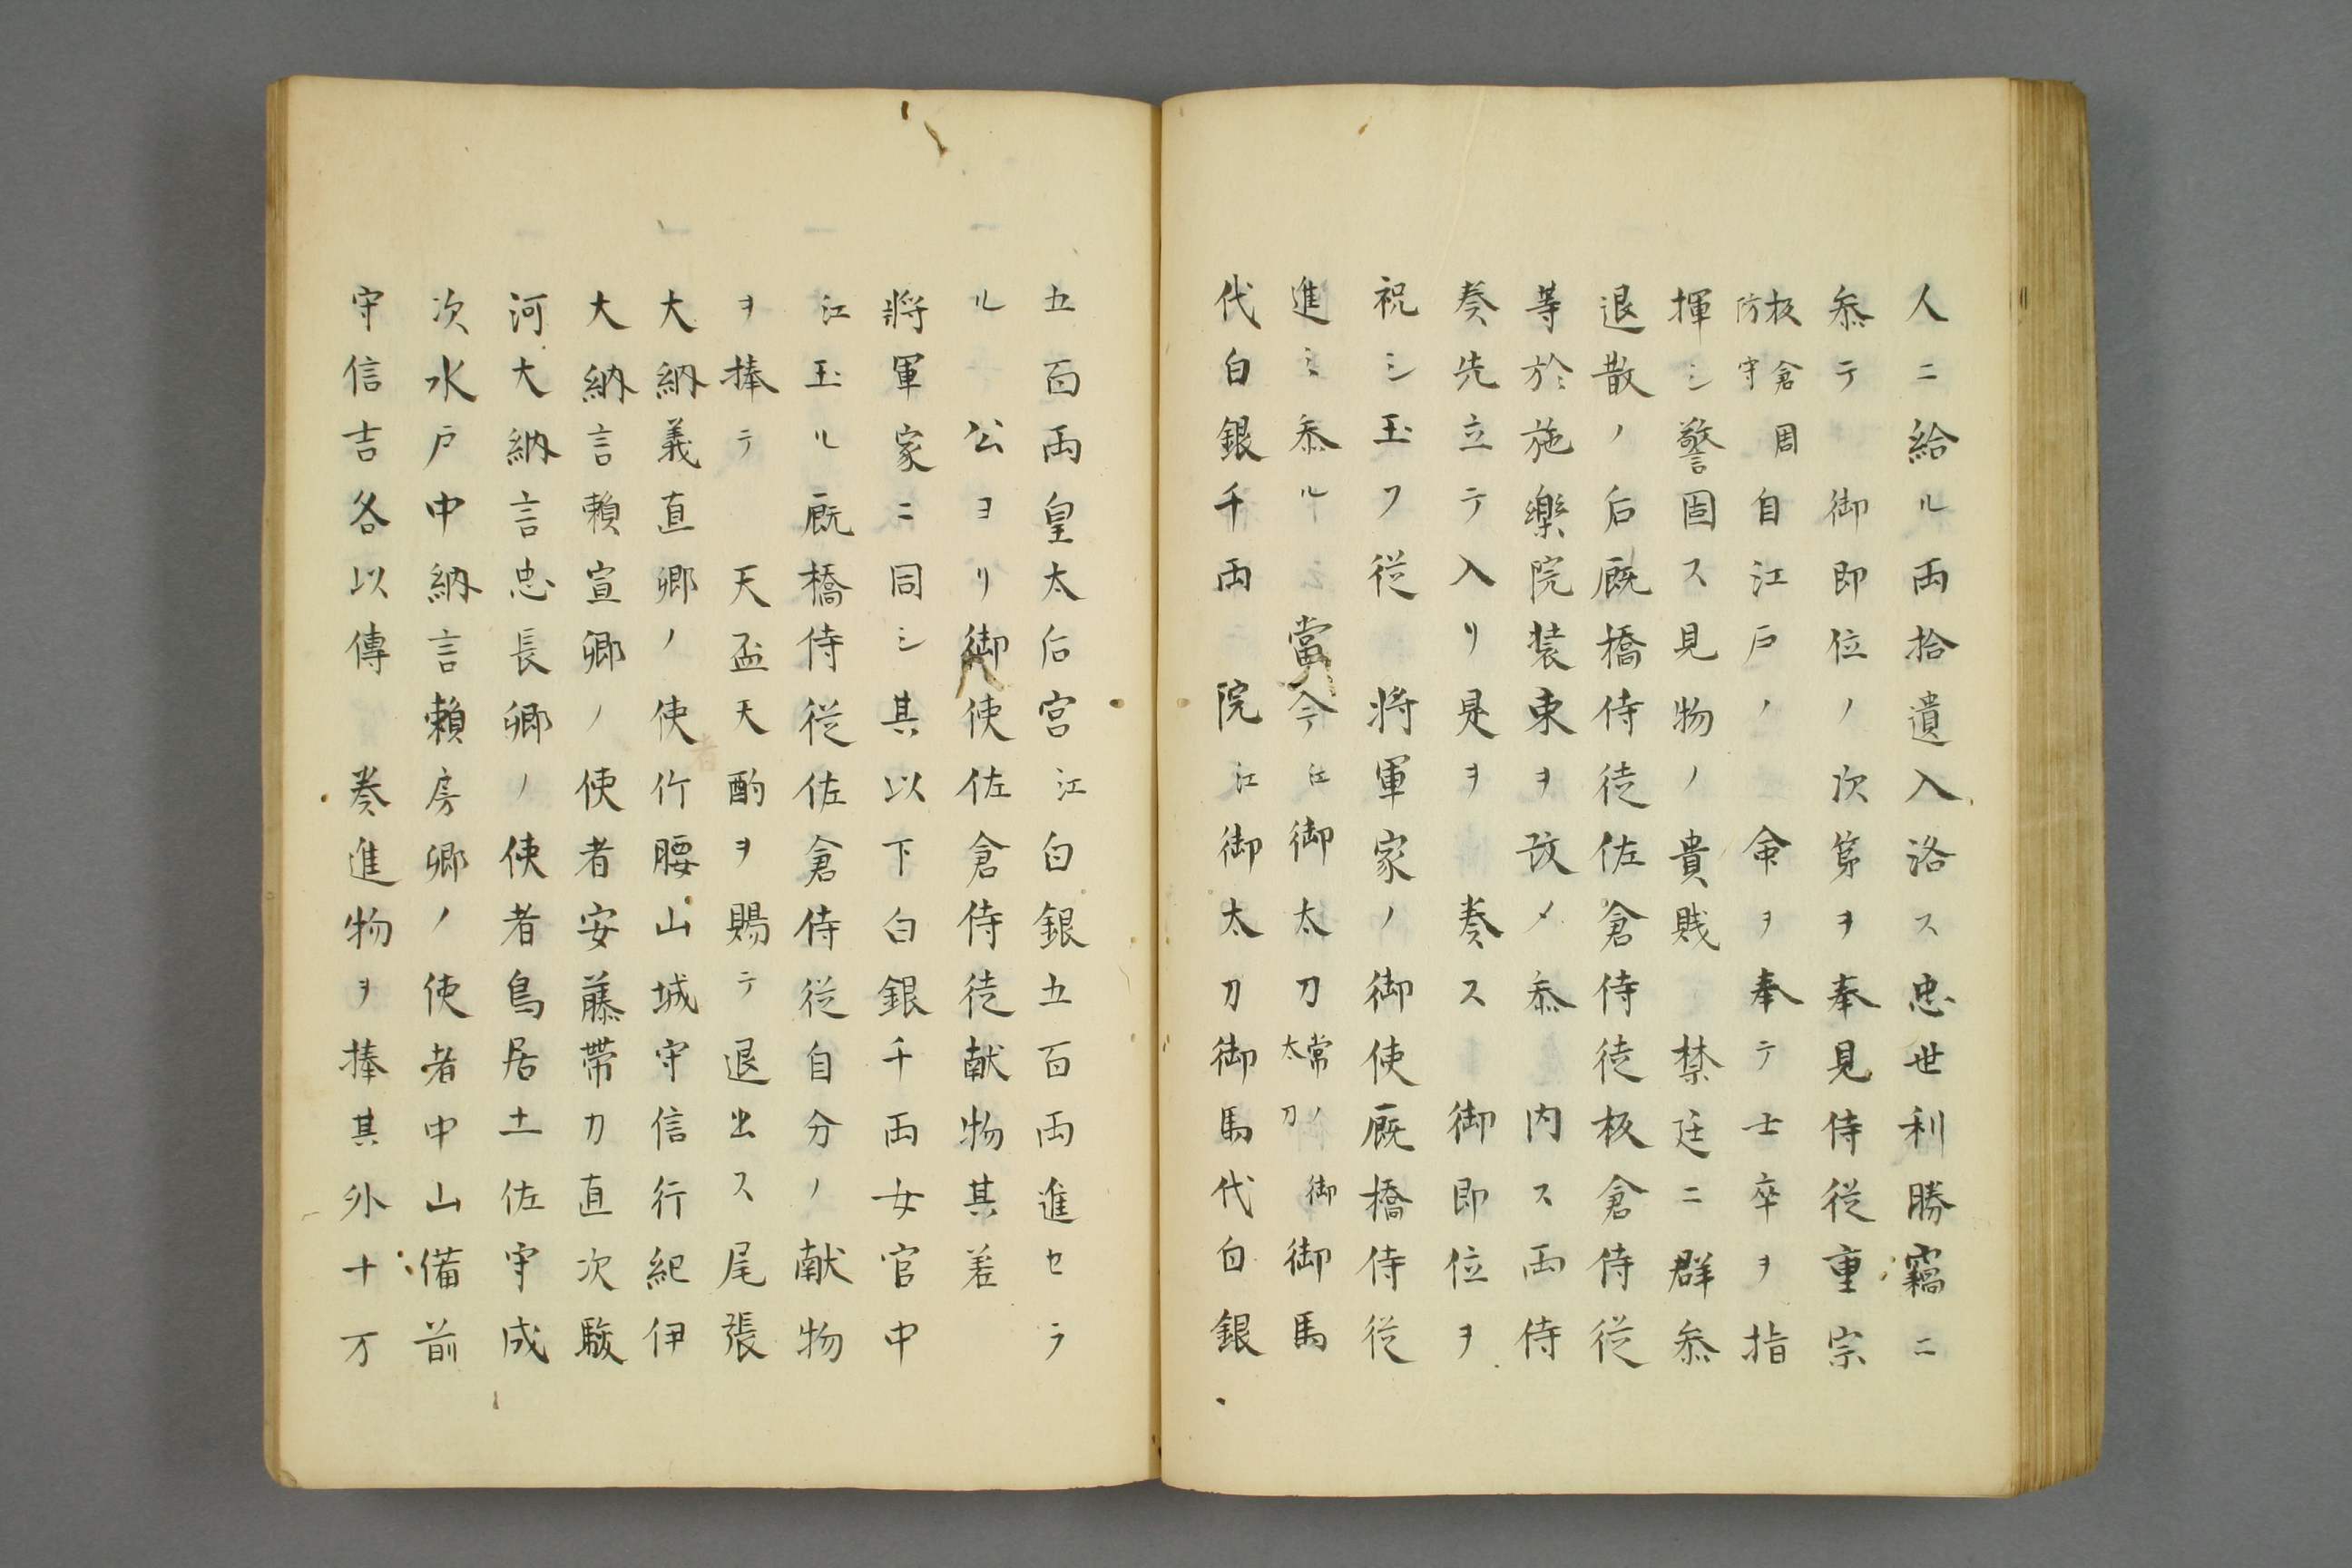 人ニ給ル両拾遺入洛ス忠世利勝竊ニ
参テ　御即位ノ次第ヲ奉見侍従重宗
板倉周防守自江戸ノ　命ヲ奉テ士卒ヲ指
揮シ警固ス見物ノ貴賎　禁廷ニ群参
退散ノ后厩橋侍従佐倉侍従板倉侍従
等於施樂院装束ヲ改メ参内ス両侍
奏先立テ入リ是ヲ　奏ス　御即位ヲ
祝シ玉フ従　将軍家ノ御使厩橋侍従
進ミ参ル　當今江御太刀常ノ御太刀御馬
代白銀千両　院江御太刀御馬代白銀
五百両皇太后宮江白銀五百両進セラ
ル　公ヨリ御使佐倉侍従献物其差
將軍家ニ同シ其以下白銀千両女官中
江玉ル厩橋侍従佐倉侍従自分ノ献物
ヲ捧テ　天盃天酌ヲ賜テ退出ス尾張
大納義直卿ノ使竹腰山城守信行紀伊
大納言頼宣卿ノ使者安藤帯刀直次駿
河大納言忠長卿ノ使者鳥居土佐守成
次水戸中納言頼房卿ノ使者中山備前
守信吉各以傳　奏進物ヲ捧其外十万